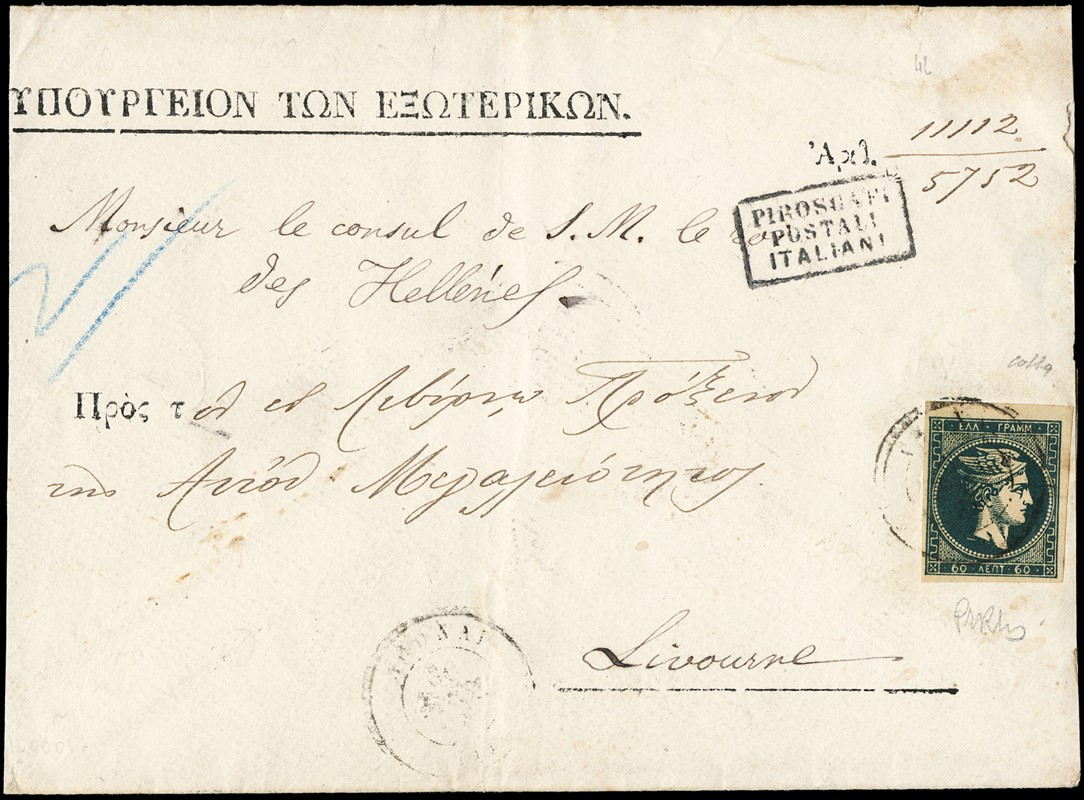 ΥΠΟΥΡΓΕΙΟΝ ΤΩΝ ΕΞΩΤΕΡΙΚΩΝ.
Ἀρθ. 11112
5752
PIROSCAFI
POSTALI
ITALIANI
Monsieur le consul de S. M. le roi
des Hellénes
Πρὸς τὸν ἐν Λιβόρνῳ Πρόξενον
τῆς Αὐτοῦ Μεγαλειότητος
ΕΛΛ · ΓΡΑΜΜ
60 · ΛΕΠΤ · 60
ΑΘΗΝΑΙ
Livourne